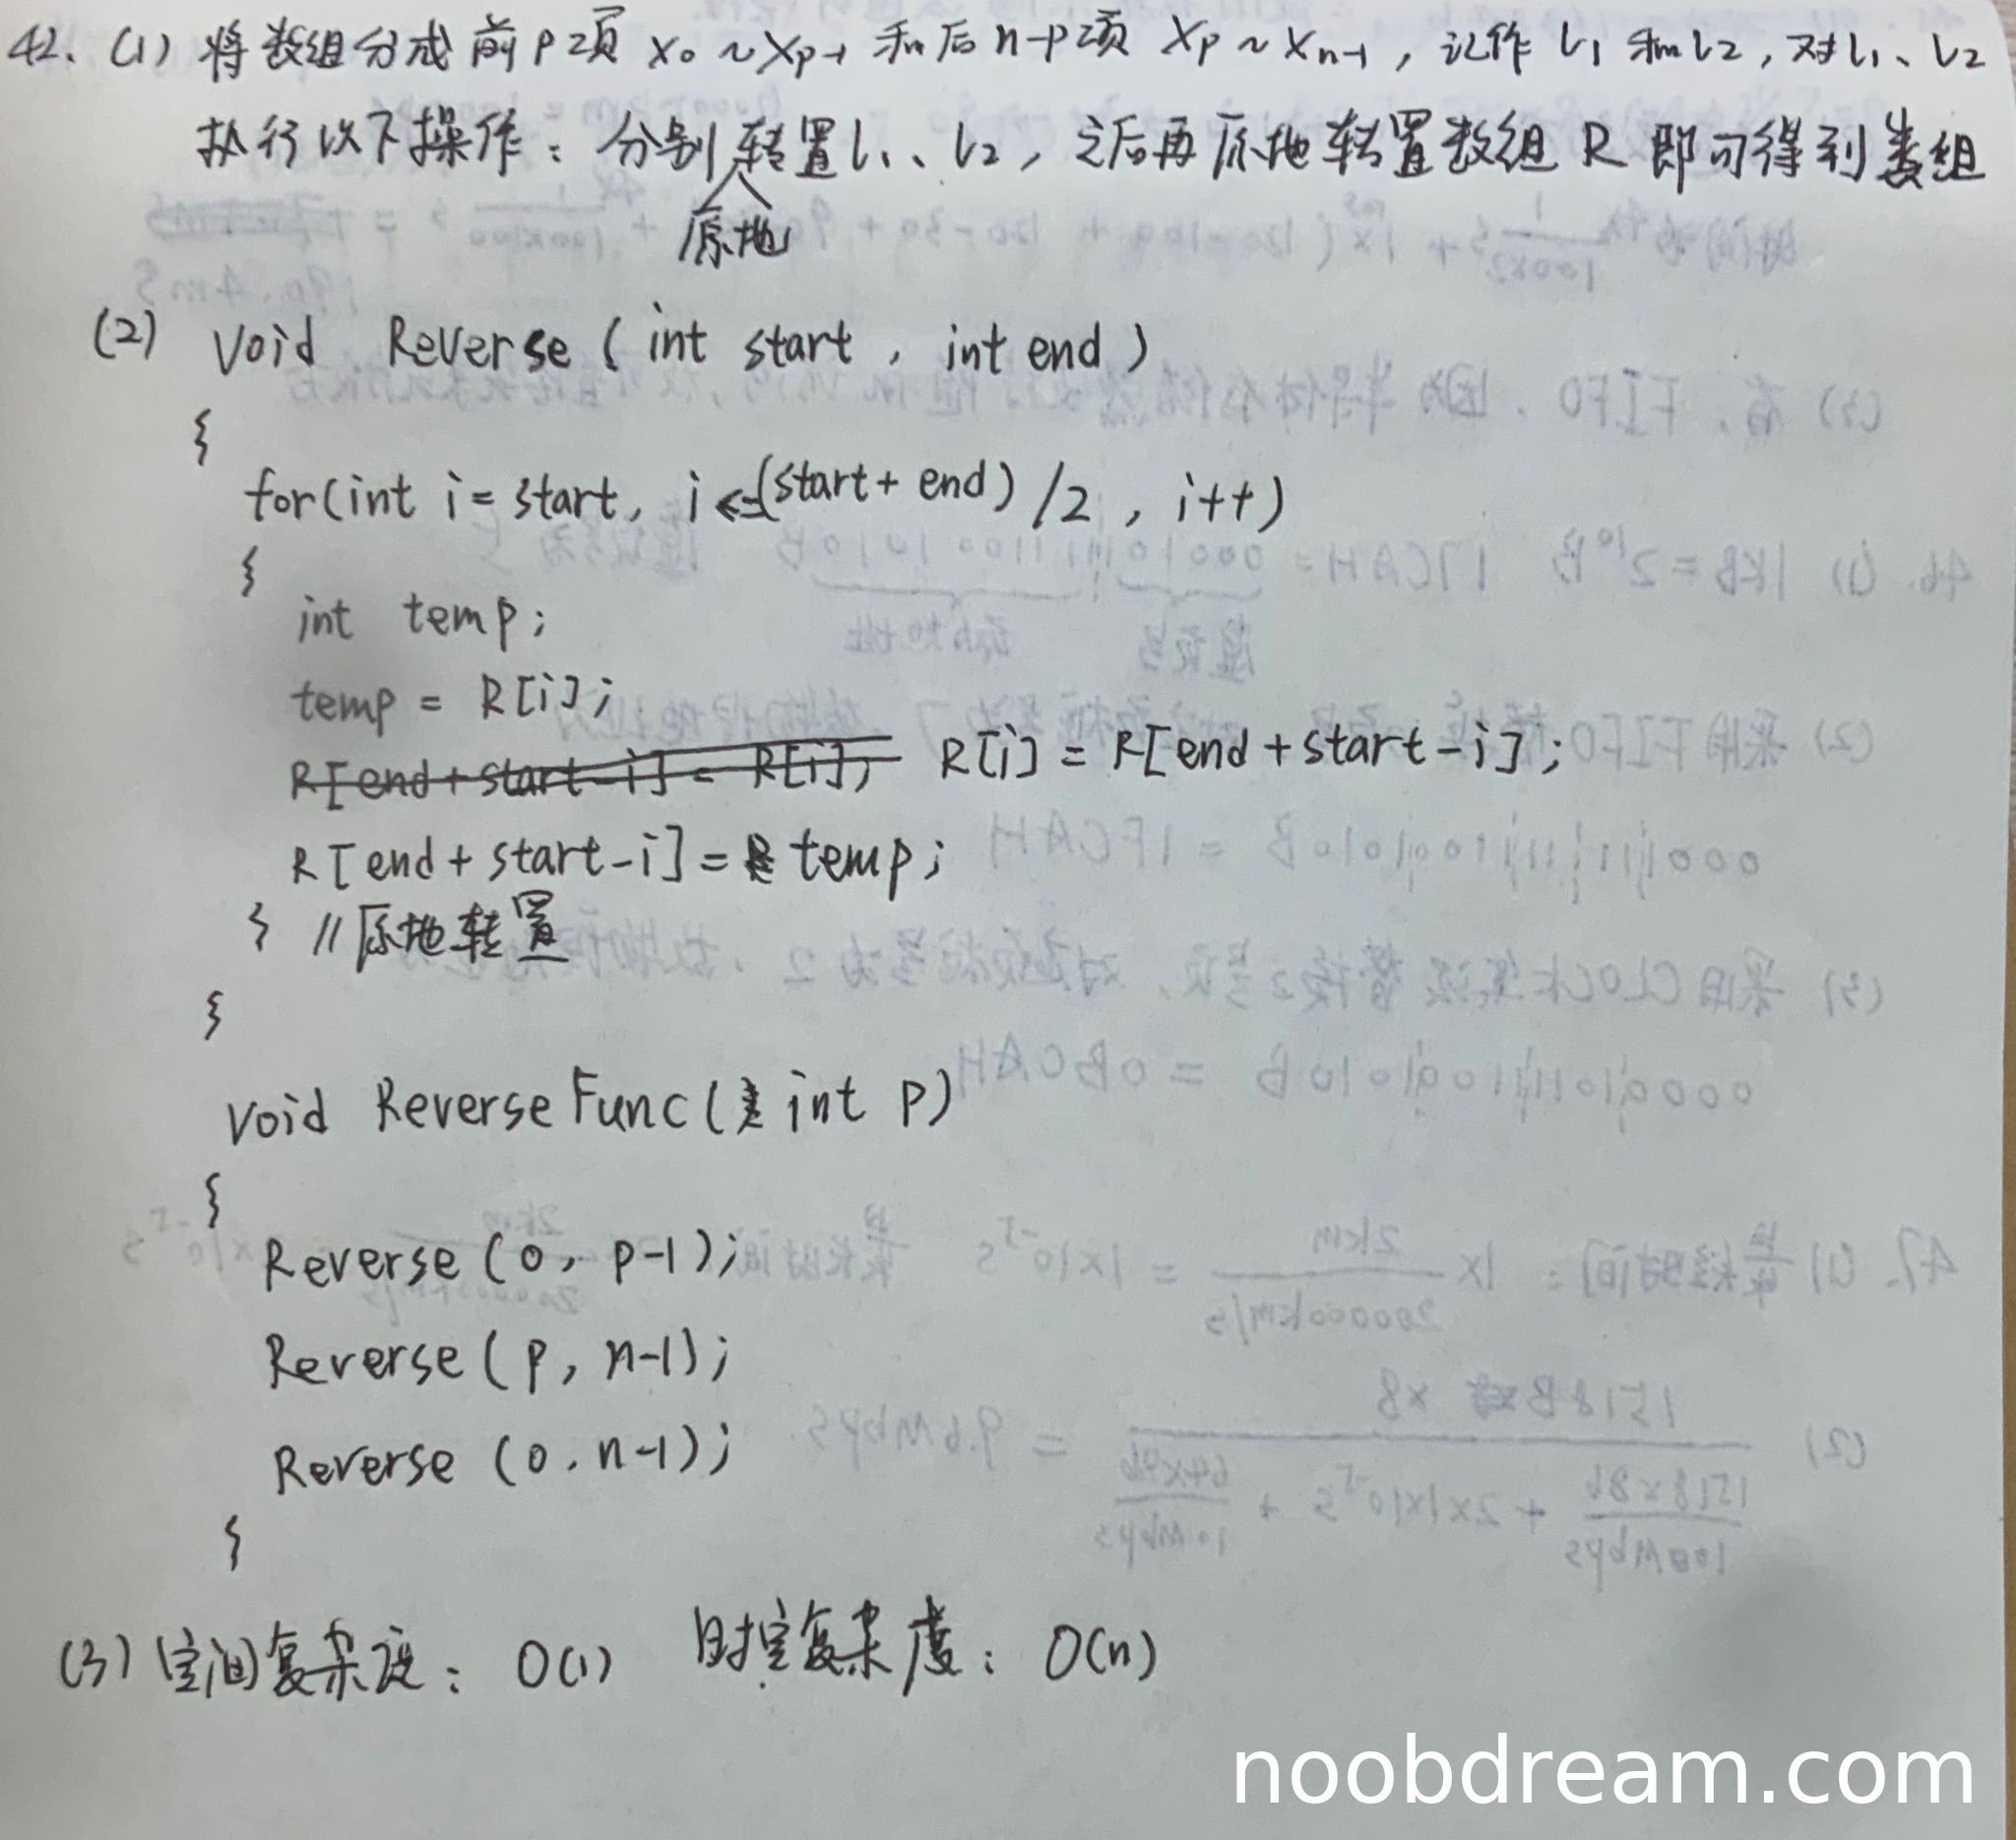 42. (1) 将数组分成前p项 x₀~xₚ₋₁ 和后n-p项 xₚ~xₙ₋₁, 记作 L₁ 和 L₂, 对L₁、L₂
执行以下操作: 分别原地转置L₁、L₂, 之后再原地转置数组R即可得到数组
(2) void Reverse (int start, int end)
{
for(int i=start, i<=(start+end)/2, i++)
{
int temp;
temp = R[i];
R[end+start-i] = R[i]; R[i] = R[end+start-i];
R[end+start-i]= temp;
} //原地转置
}
void ReverseFunc( int p)
{
Reverse (0, p-1);
Reverse (p, n-1);
Reverse (0, n-1);
}
(3) 空间复杂度: O(1) 时空复杂度: O(n)
noobdream.com